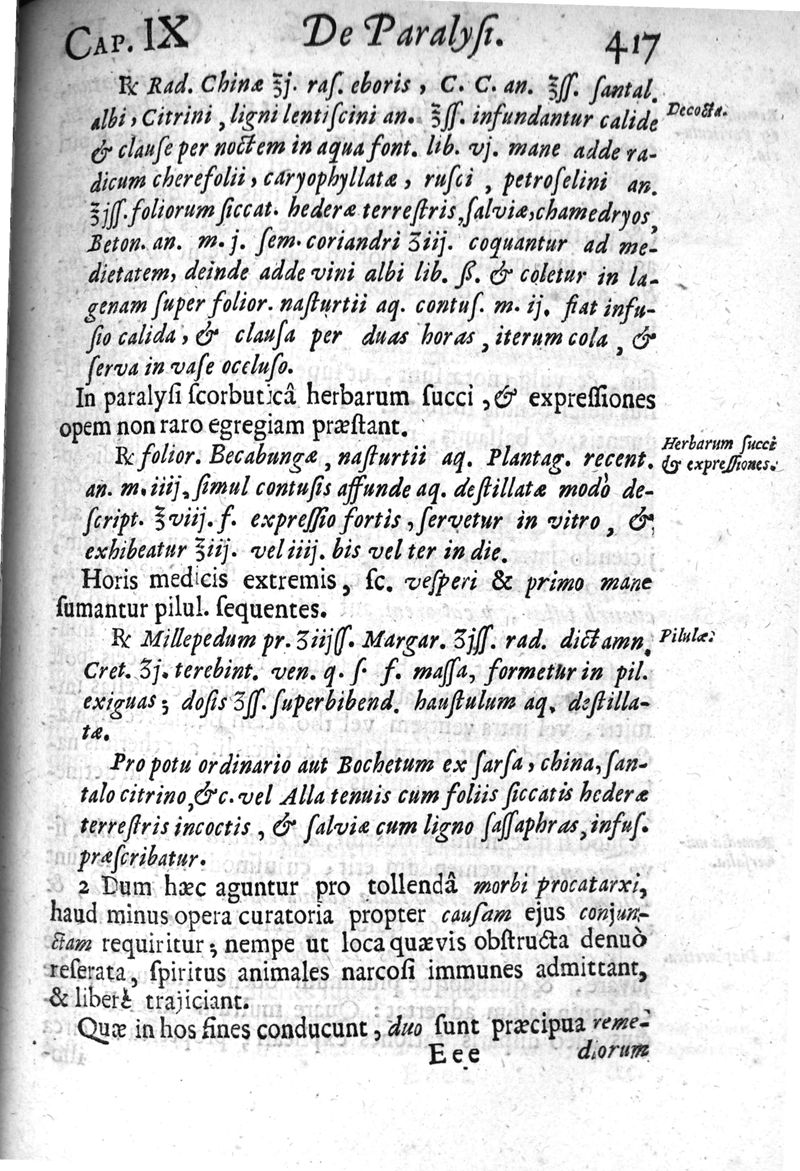 CAP. IX De Paralyſi. 417
℞ Rad. Chinæ ℥j. raſ. eboris, C. C. an. ℥ſſ. ſantal.
albi, Citrini, ligni lentiſcini an. ℥ſſ. infundantur calide
Decocta.
& clauſe per noctem in aqua font. lib. vj. mane adde ra-
dicum cherefolii, caryophyllatæ, ruſci, petroſelini an.
℥jſſ. foliorum ſiccat. hederæ terreſtris, ſalviæ, chamedryos,
Beton. an. m. j. ſem. coriandri ʒiij. coquantur ad me-
dietatem, deinde adde vini albi lib. ß. & coletur in la-
genam ſuper folior. naſturtii aq. contuſ. m. ij. fiat infu-
ſio calida, & clauſa per duas horas, iterum cola, &
ſerva in vaſe occluſo.
In paralyſi ſcorbuticâ herbarum ſucci, & expreſſiones
opem non raro egregiam præſtant.
℞ folior. Becabungæ, naſturtii aq. Plantag. recent.
Herbarum ſucci
& expreſſiones.
an. m. iiij, ſimul contuſis affunde aq. deſtillatæ modò de-
ſcript. ℥viij. f. expreſſio fortis, ſervetur in vitro, &
exhibeatur ℥iij. vel iiij. bis vel ter in die.
Horis medicis extremis, ſc. veſperi & primo mane
ſumantur pilul. ſequentes.
℞ Millepedum pr. ʒiijſſ. Margar. ʒjſſ. rad. dictamn.
Pilulæ.
Cret. ʒj. terebint. ven. q. ſ. f. maſſa, formetur in pil.
exiguas; doſis ʒſſ. ſuperbibend. hauſtulum aq. deſtilla-
tæ.
Pro potu ordinario aut Bochetum ex ſarſa, china, ſan-
talo citrino, &c. vel Alla tenuis cum foliis ſiccatis hederæ
terreſtris incoctis, & ſalviæ cum ligno ſaſſaphras, infuſ.
præſcribatur.
2 Dum hæc aguntur pro tollendâ morbi procatarxi,
haud minus opera curatoria propter cauſam ejus conjun-
ctam requiritur; nempe ut loca quævis obſtructa denuò
reſerata, ſpiritus animales narcoſi immunes admittant,
& liberè trajiciant.
Quæ in hos fines conducunt, duo ſunt præcipua reme-
Eee diorum